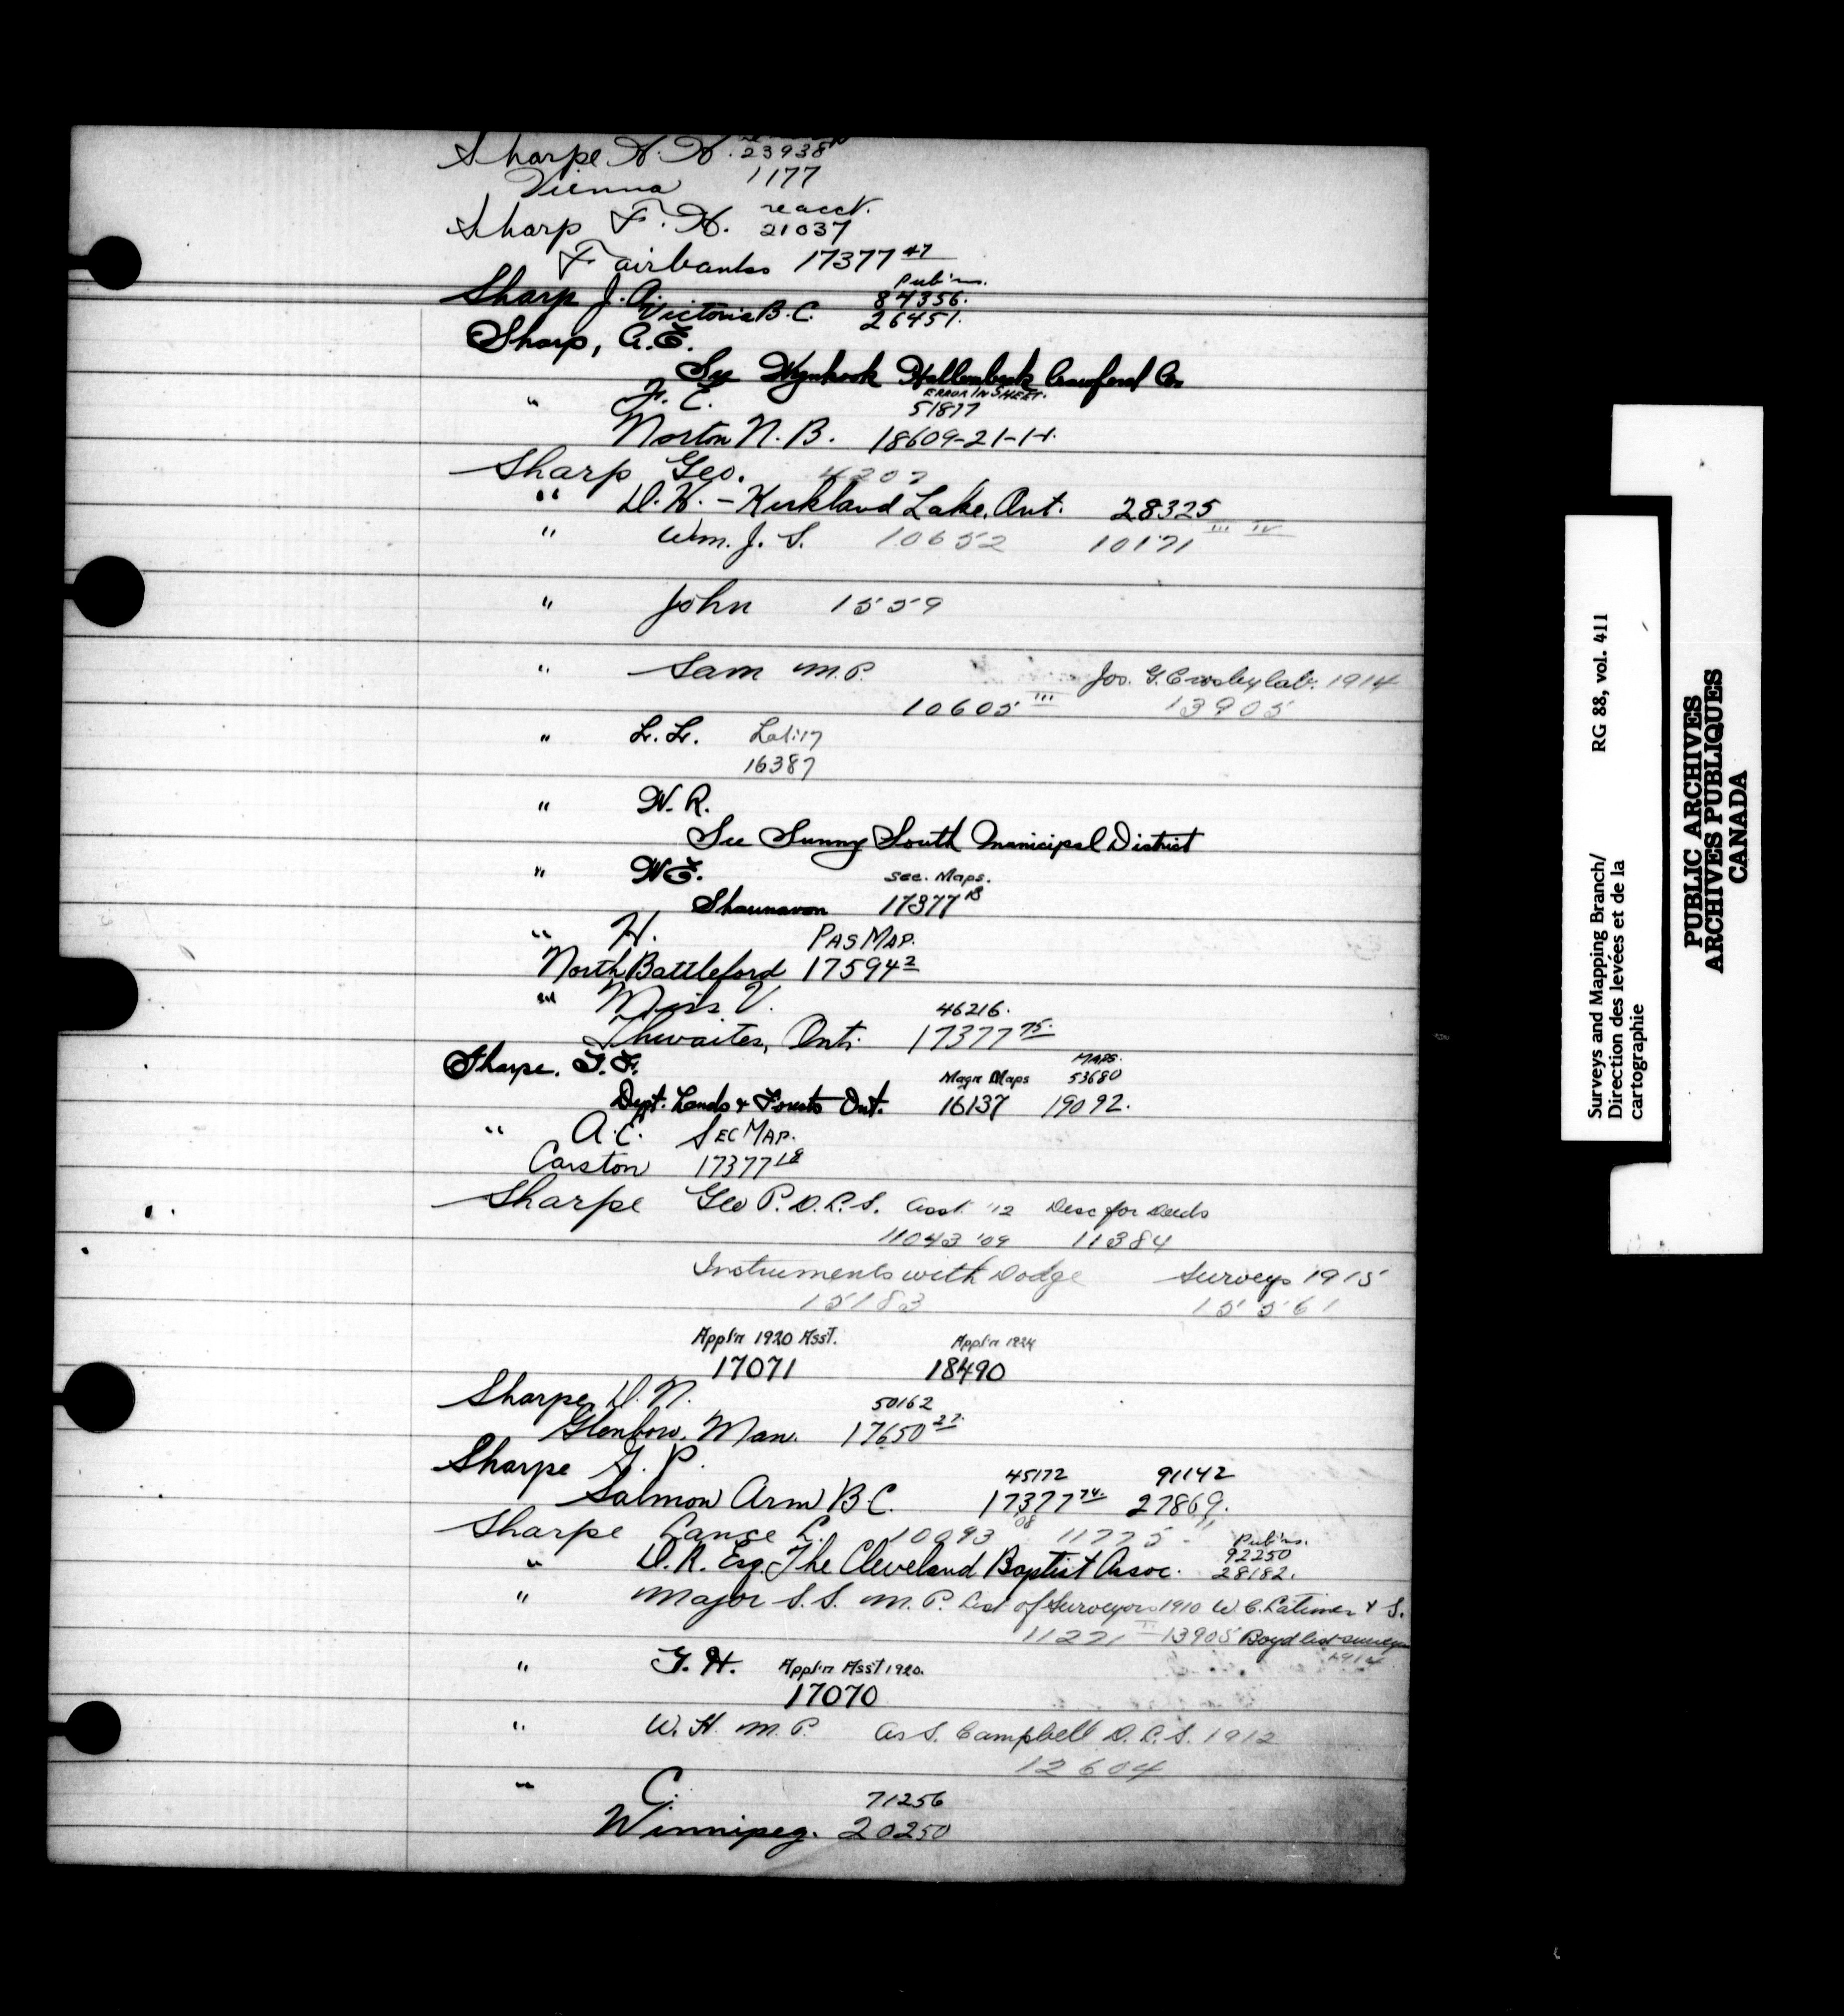 Sharpe H. H. 23938
Vienna 1177
Sharp F. H. re acct. 21037
Fairbanks 17377 47
Sharp J. A. Pub'ns. 84356.
Victoria B.C. 26451.
Sharp, A.E.
See Hollenbeck Crawford Co
" F. E. ERROR IN SHEET. 51877
Norton N. B. 18609-21-1-1.
Sharp Geo. 4207
" D. H. - Kirkland Lake, Ont. 28325
" Wm. J. S. 10652 10171 III IV
" John 1559
" Sam M.P. Jos. G. Crosby lab. 1914
10605 III 13905
" L. L. Lab. 17
16387
" W. R.
See Sunny South Municipal District
" W.E. Sec. Maps.
Shaunavon 17377 18
" H. PAS MAP.
North Battleford 17594 2
" Miss V. 46216.
Thwaites, Ont. 17377 75.
Sharpe. J. F. Magn Maps MAPS. 53680
Dept. Lands & Forests Ont. 16137 19092.
" A. E. SEC MAP.
Carston 17377 18
Sharpe Geo P. D.L.S. asst. '12 Desc for Deeds
11043 '09 11384
Instruments with Dodge Surveys 1915
15183 15561
Appl'n 1920 Asst. Appl'n 1924
17071 18490
Sharpe, D. N. 50162
Glenbow, Man. 17650 27.
Sharpe G. P. 45172 91142
Salmon Arm B.C. 17377 74. 27869.
Sharpe Lance L. 10093 '08 11775 - "
" D. R. Esq. The Cleveland Baptist Assoc. Pub'ns. 92250 28182.
" Major S. S. M.P. List of Surveyors 1910 W. C. Latimer & S.
11271 13905 Boyd list surveyors
1914
" G. H. Appl'n Asst 1920.
17070
" W. H. M.P. As S. Campbell D.L.S. 1912
12604
" C. 71256
Winnipeg. 20250
Surveys and Mapping Branch/ RG 88, vol. 411
Direction des levées et de la
cartographie
PUBLIC ARCHIVES
ARCHIVES PUBLIQUES
CANADA